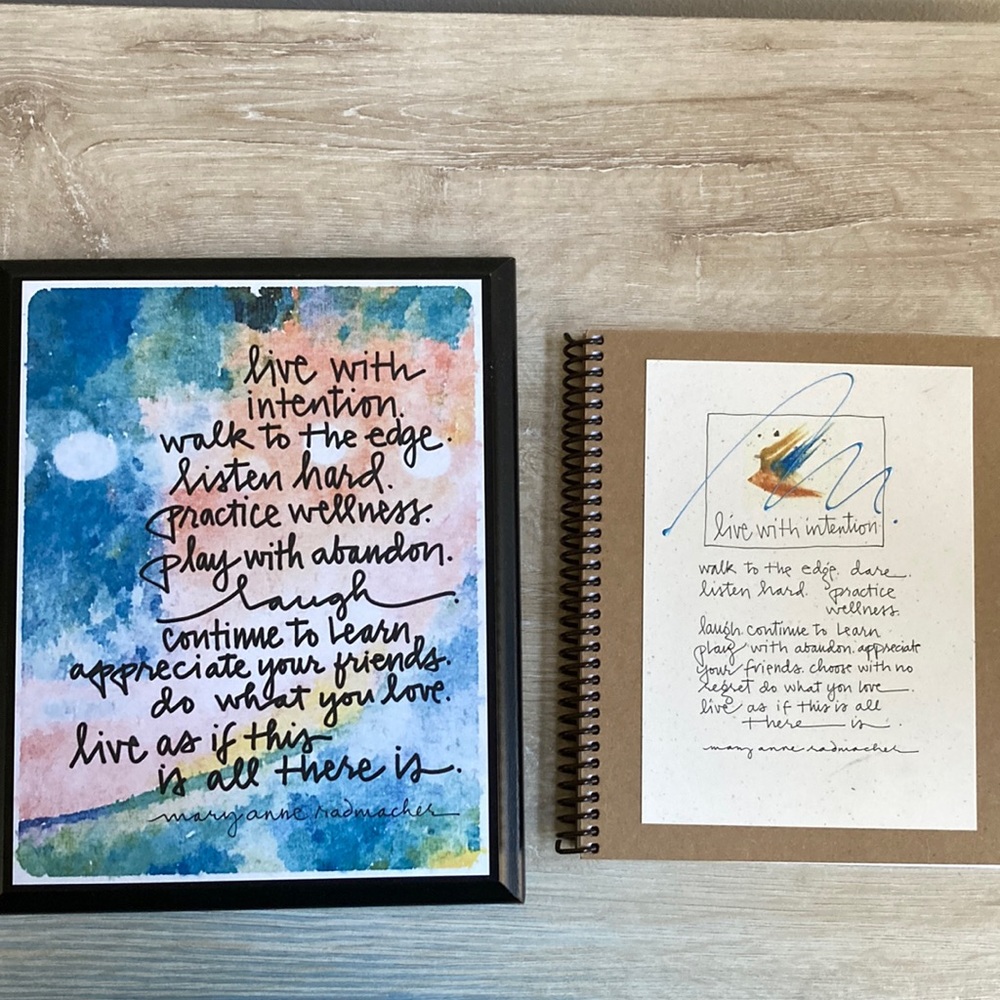 live with
intention.
walk to the edge.
listen hard.
practice wellness.
play with abandon.
laugh.
continue to learn.
appreciate your friends.
do what you love.
live as if this
is all there is.
mary anne radmacher
live with intention
walk to the edge. dare.
listen hard. practice
wellness.
laugh. continue to learn.
play with abandon. appreciate
your friends. choose with no
regret do what you love.
live as if this is all
there is.
mary anne radmacher